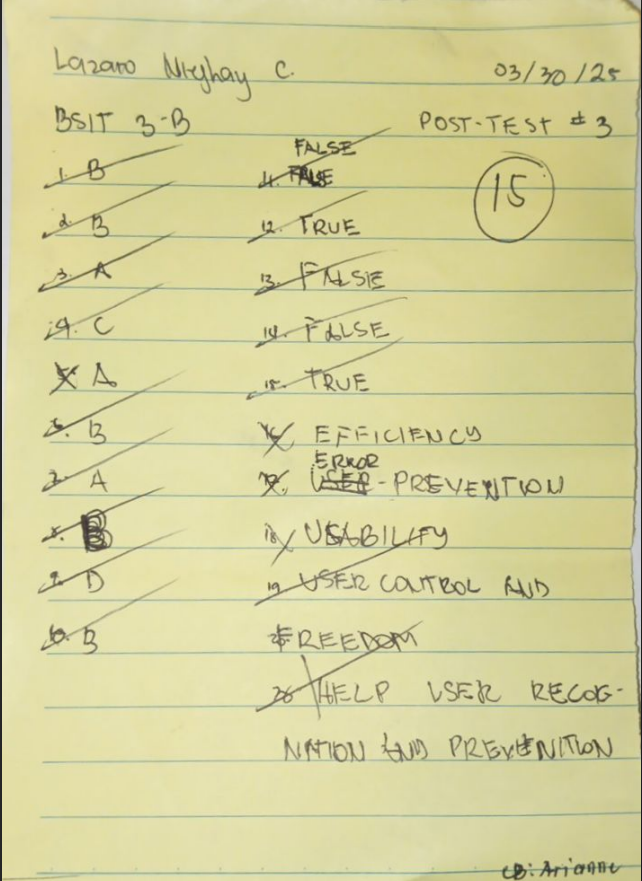 Lazaro Nieyhay C. 03/30/25
BSIT 3-B POST-TEST # 3
15
1. B
2. B
3. A
4. C
5. A
6. B
7. A
8. B
9. D
10. B
FALSE
11.
12. TRUE
13. FALSE
14. FALSE
15. TRUE
16. EFFICIENCY
ERROR
17. USER-PREVENTION
18. USABILITY
19. USER CONTROL AND
FREEDOM
20. HELP USER RECOG-
NATION AND PREVENITION
CB: Arianne